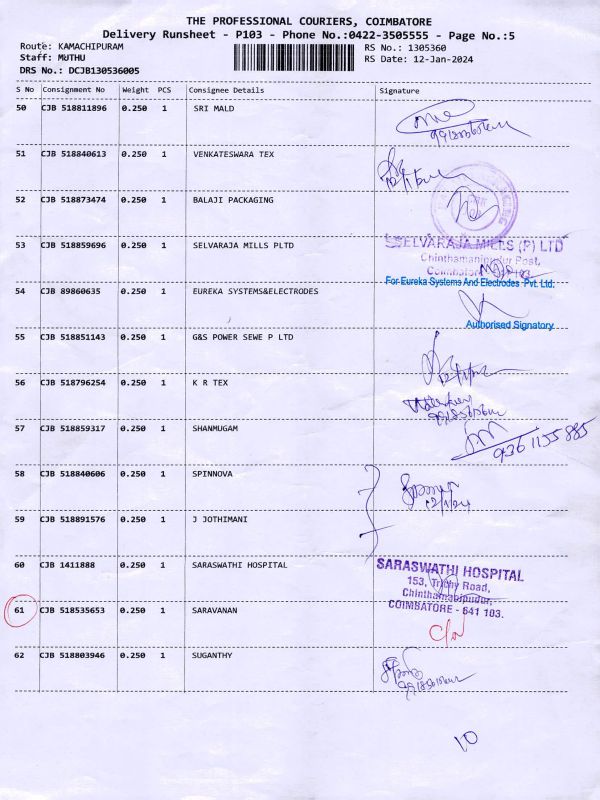 THE PROFESSIONAL COURIERS, COIMBATORE
Delivery Runsheet - P103 - Phone No.:0422-3505555 - Page No.:5
Route: KAMACHIPURAM
RS No.: 1305360
Staff: MUTHU
RS Date: 12-Jan-2024
DRS No.: DCJB130536005
S No Consignment No Weight PCS Consignee Details Signature
50 CJB 518811896 0.250 1 SRI MALD
51 CJB 518840613 0.250 1 VENKATESWARA TEX
52 CJB 518873474 0.250 1 BALAJI PACKAGING
53 CJB 518859696 0.250 1 SELVARAJA MILLS PLTD
SELVARAJA MILLS (P) LTD
Chinthamanipudur Post,
Coimbatore
54 CJB 89860635 0.250 1 EUREKA SYSTEMS&ELECTRODES
For Eureka Systems And Electrodes Pvt. Ltd.
Authorised Signatory
55 CJB 518851143 0.250 1 G&S POWER SEWE P LTD
56 CJB 518796254 0.250 1 K R TEX
57 CJB 518859317 0.250 1 SHANMUGAM
9361155885
58 CJB 518840606 0.250 1 SPINNOVA
59 CJB 518891576 0.250 1 J JOTHIMANI
60 CJB 1411888 0.250 1 SARASWATHI HOSPITAL
SARASWATHI HOSPITAL
153, Trichy Road,
Chinthamanipudur,
COIMBATORE - 641 103.
61 CJB 518535653 0.250 1 SARAVANAN
62 CJB 518803946 0.250 1 SUGANTHY
10